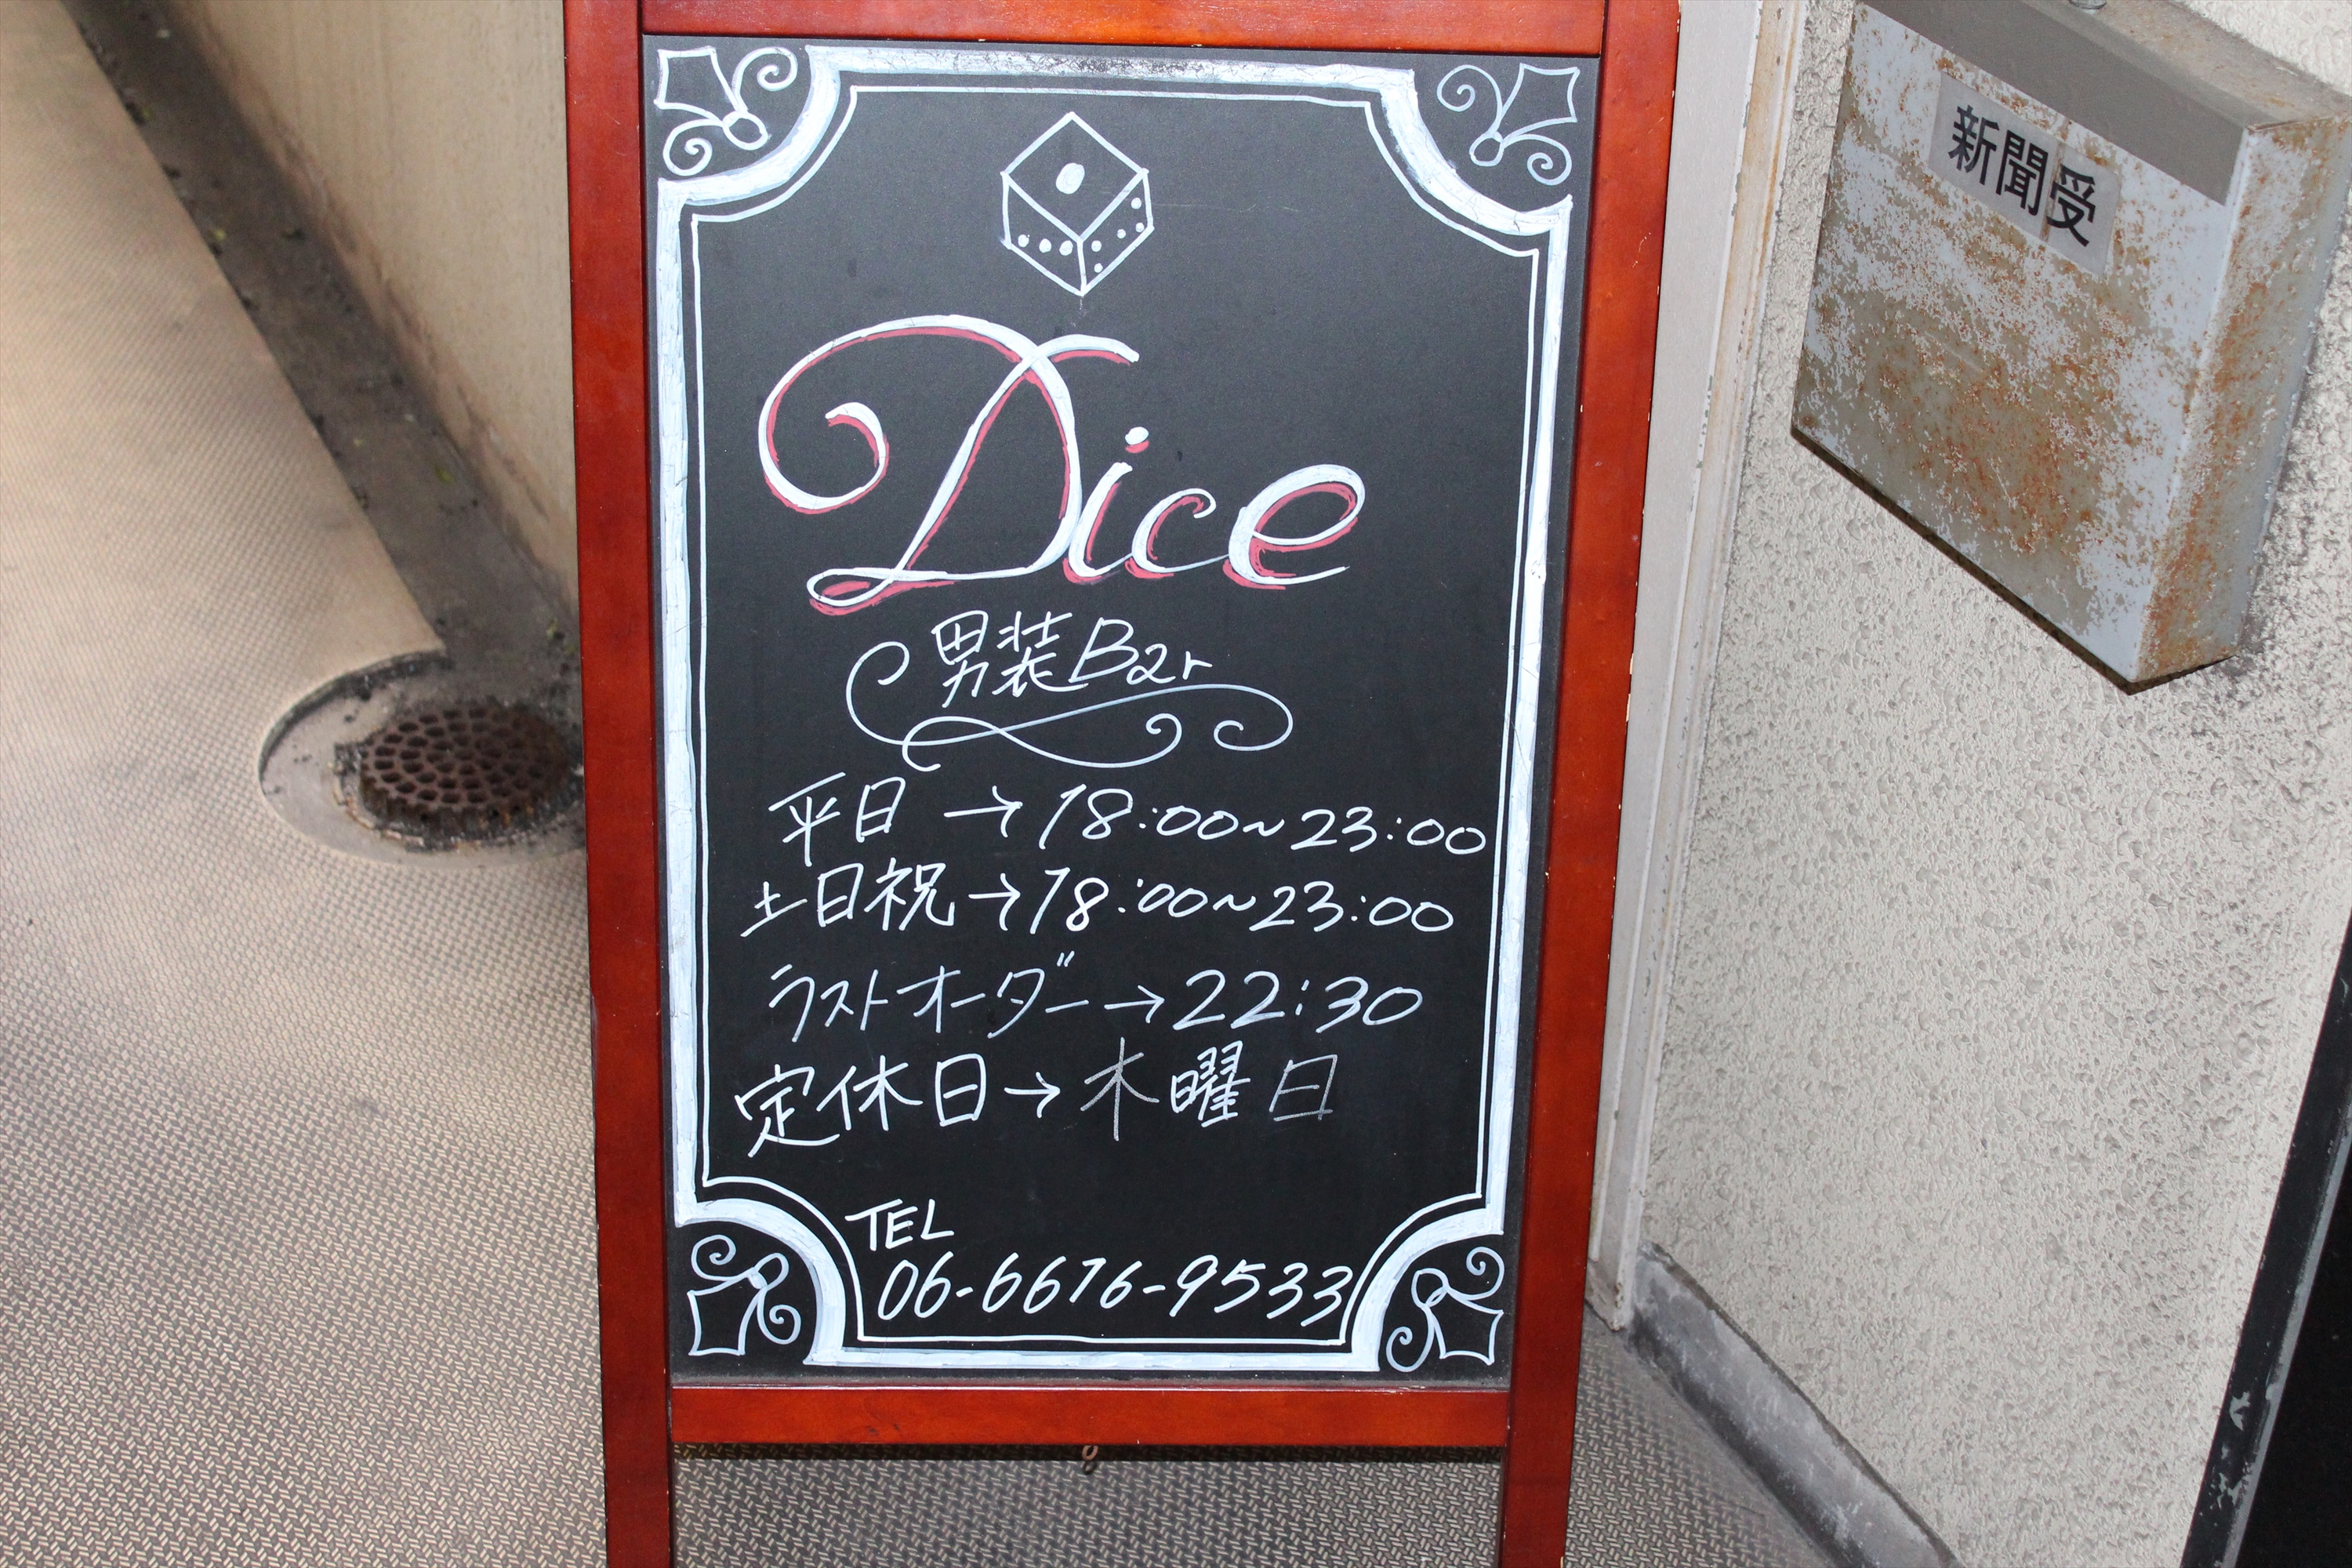 Dice
男装Bar
平日→18:00~23:00
土日祝→18:00~23:00
ラストオーダー→22:30
定休日→木曜日
TEL
06-6676-9533
新聞受